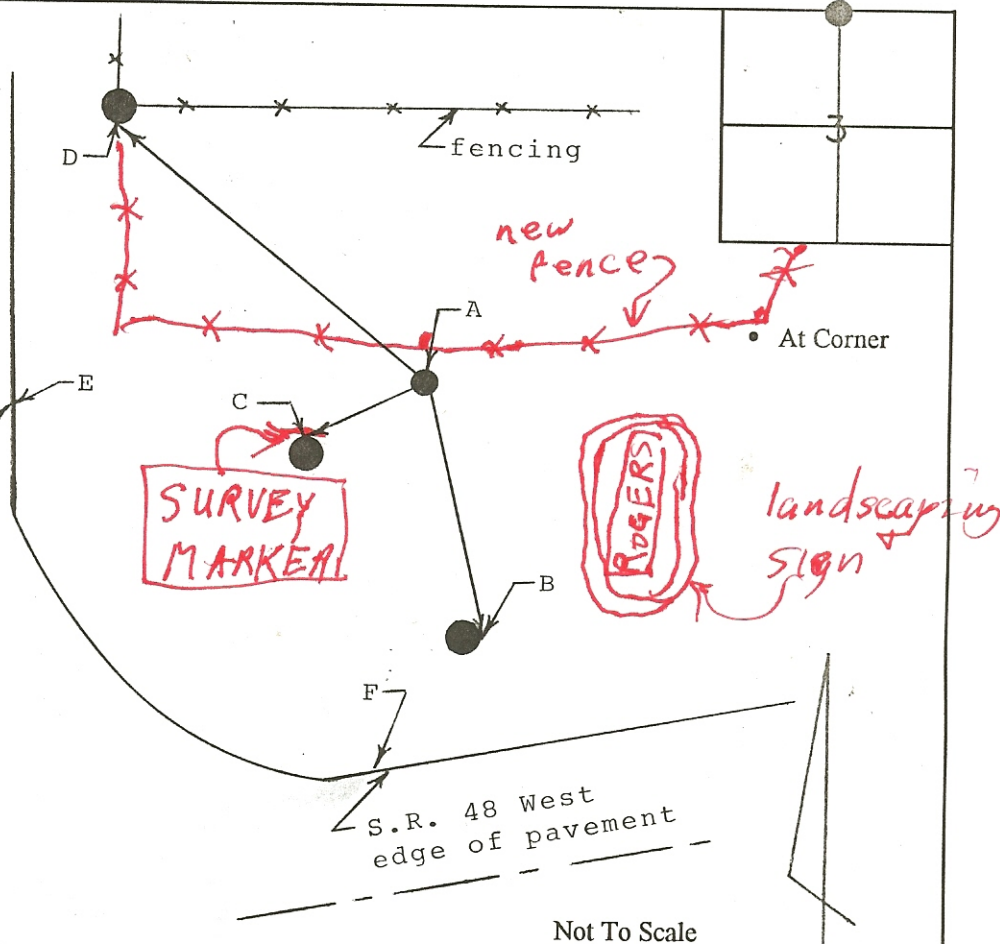 3
D
fencing
new
fence
A
At Corner
E
C
SURVEY
MARKER
ROGERS
landscaping
+
sign
B
F
S.R. 48 West
edge of pavement
Not To Scale